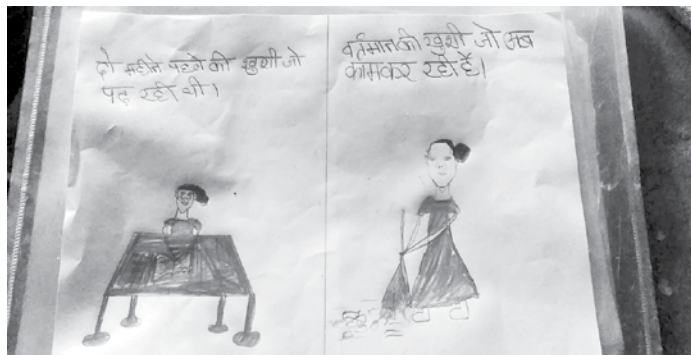 दो महीने पहले की खुशी जो
पढ़ रही थी।
वर्तमान की खुशी जो अब
काम कर रही है।